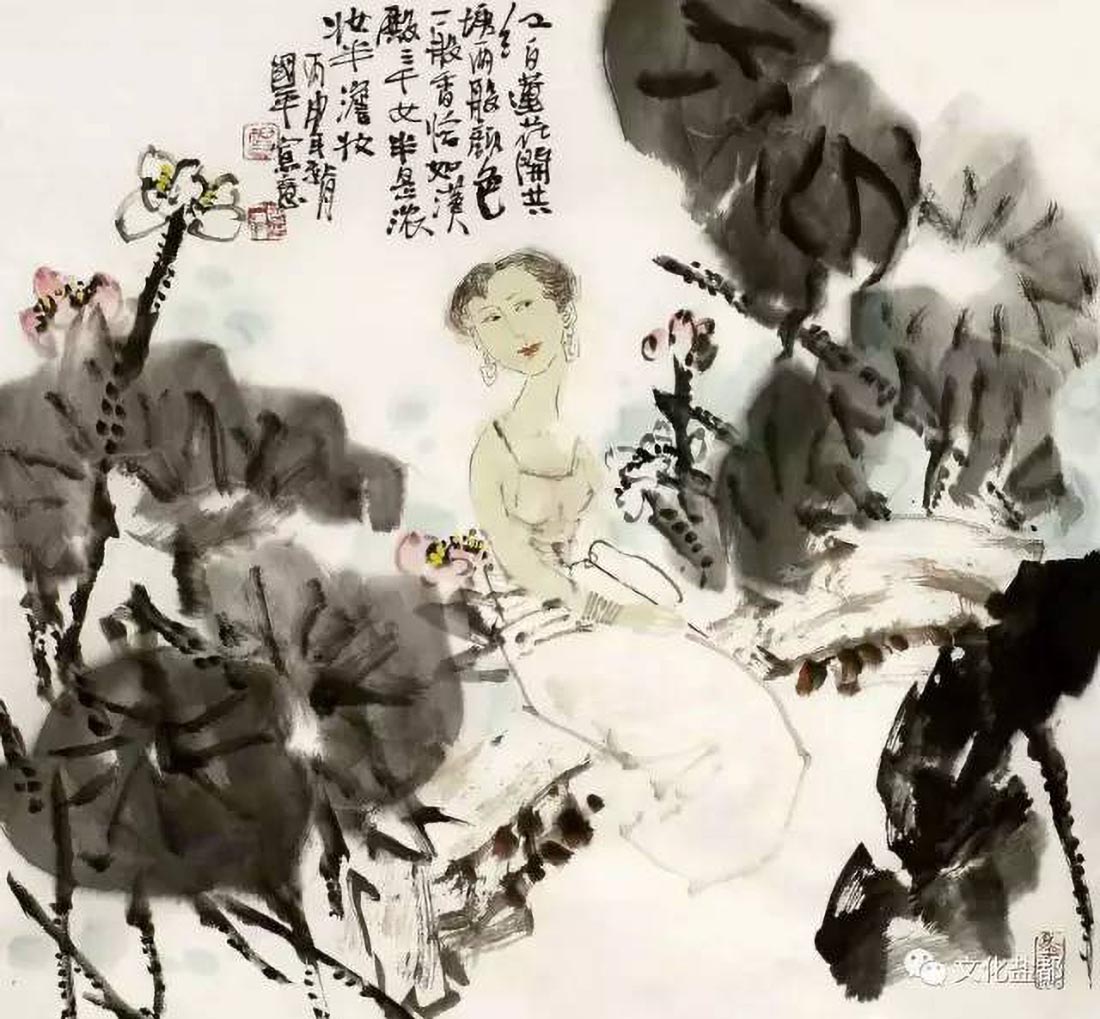 红白莲花開共
塘兩般顔色
一般香恰如漢
殿三千女半是濃
妆半澹妆
丙申年
國平寫意
文化盐都